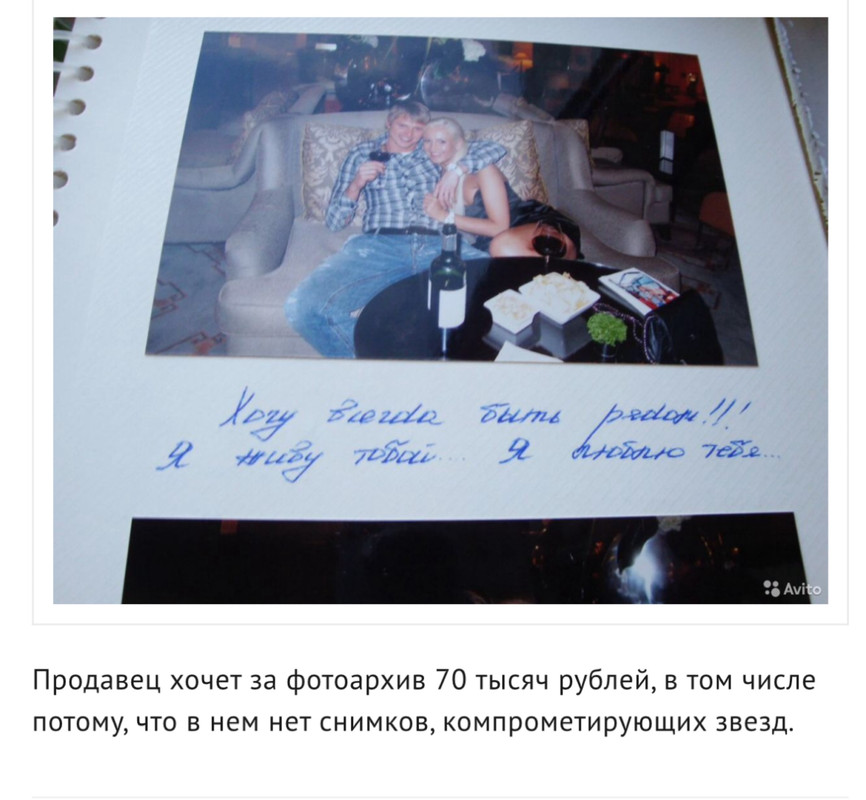 Хочу всегда быть рядом!!!
Я живу тобой... Я люблю тебя...
Avito
Продавец хочет за фотоархив 70 тысяч рублей, в том числе
потому, что в нем нет снимков, компрометирующих звезд.